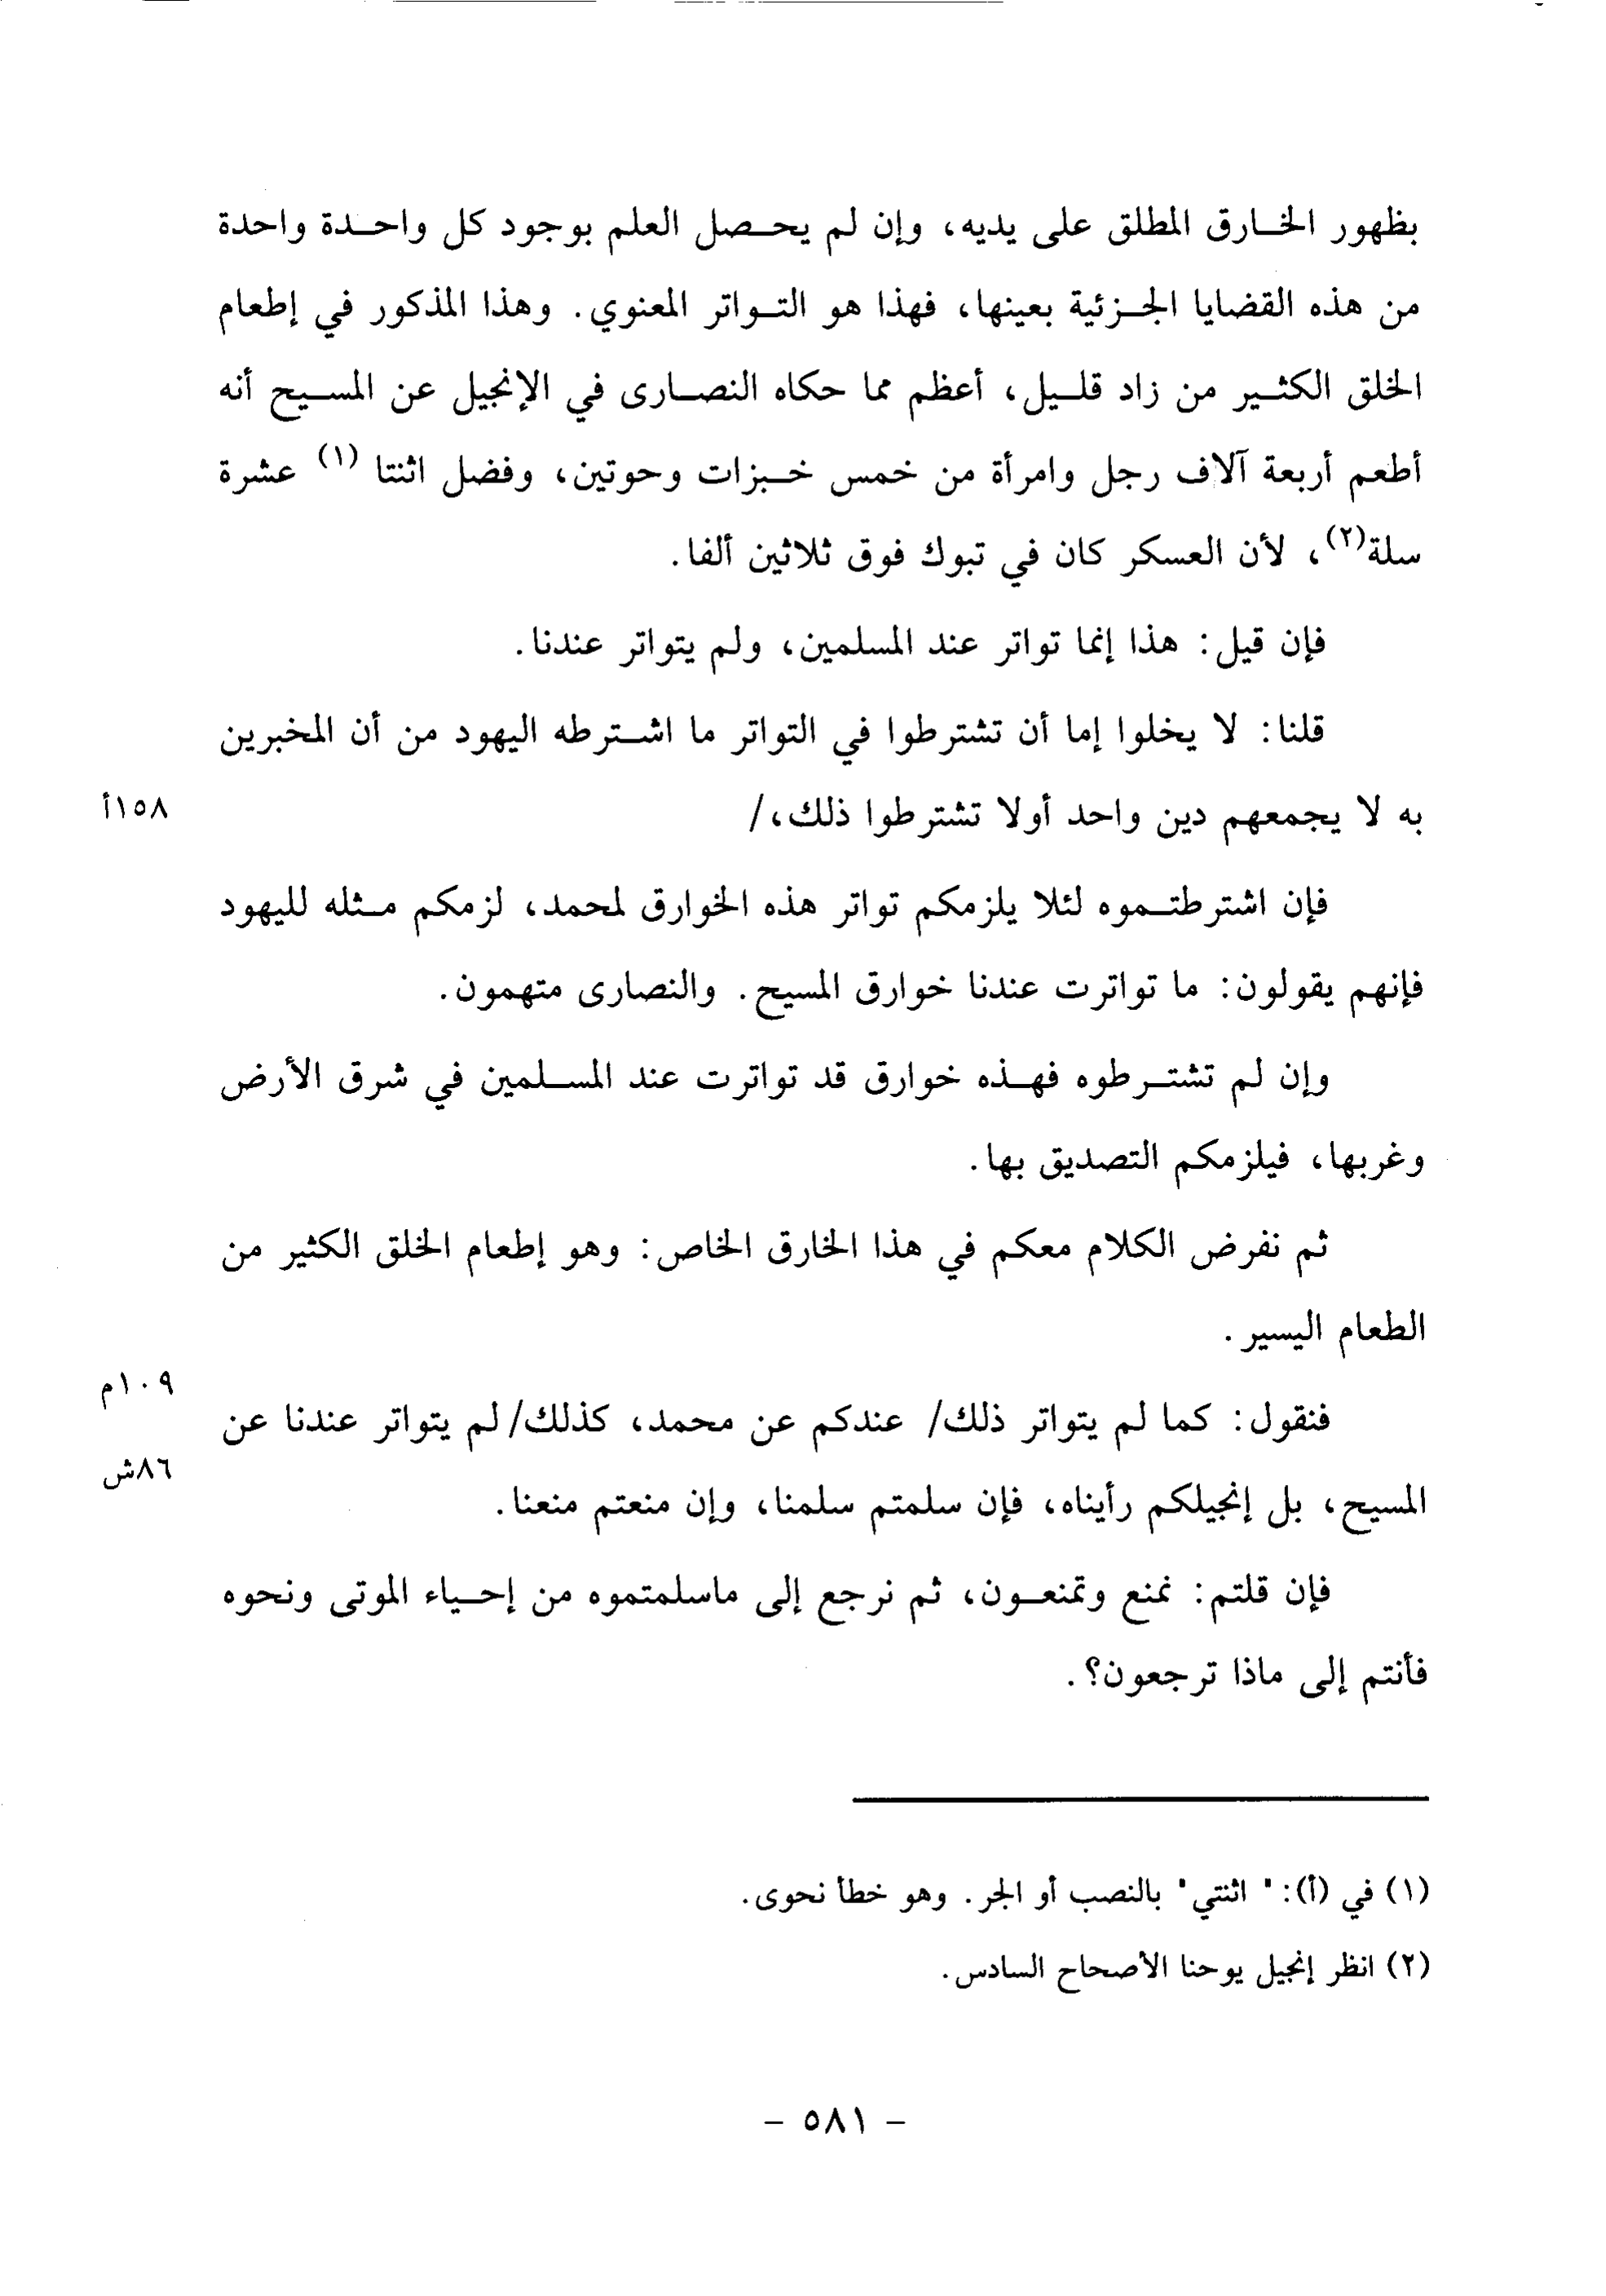 بظهور الخارق المطلق على يديه، وإن لم يحصل العلم بوجود كل واحدة واحدة
من هذه القضايا الجزئية بعينها، فهذا هو التواتر المعنوي. وهذا المذكور في إطعام
الخلق الكثير من زاد قليل، أعظم مما حكاه النصارى في الإنجيل عن المسيح أنه
أطعم أربعة آلاف رجل وامرأة من خمس خبزات وحوتين، وفضل اثنتا (١) عشرة
سلة(٢)، لأن العسكر كان في تبوك فوق ثلاثين ألفا.
فإن قيل: هذا إنما تواتر عند المسلمين، ولم يتواتر عندنا.
قلنا: لا يخلوا إما أن تشترطوا في التواتر ما اشترطه اليهود من أن المخبرين
به لا يجمعهم دين واحد أولا تشترطوا ذلك،/
١٥٨أ
فإن اشترطتموه لئلا يلزمكم تواتر هذه الخوارق لمحمد، لزمكم مثله لليهود
فإنهم يقولون: ما تواترت عندنا خوارق المسيح. والنصارى متهمون.
وإن لم تشترطوه فهذه خوارق قد تواترت عند المسلمين في شرق الأرض
وغربها، فيلزمكم التصديق بها.
ثم نفرض الكلام معكم في هذا الخارق الخاص: وهو إطعام الخلق الكثير من
الطعام اليسير.
١٠٩م
فنقول: كما لم يتواتر ذلك/ عندكم عن محمد، كذلك/ لم يتواتر عندنا عن
٨٦ش
المسيح، بل إنجيلكم رأيناه، فإن سلمتم سلمنا، وإن منعتم منعنا.
فإن قلتم: نمنع وتمنعون، ثم نرجع إلى ماسلمتموه من إحياء الموتى ونحوه
فأنتم إلى ماذا ترجعون؟.
(١) في (أ): " اثنتي" بالنصب أو الجر. وهو خطأ نحوى.
(٢) انظر إنجيل يوحنا الأصحاح السادس.
- ٥٨١ -